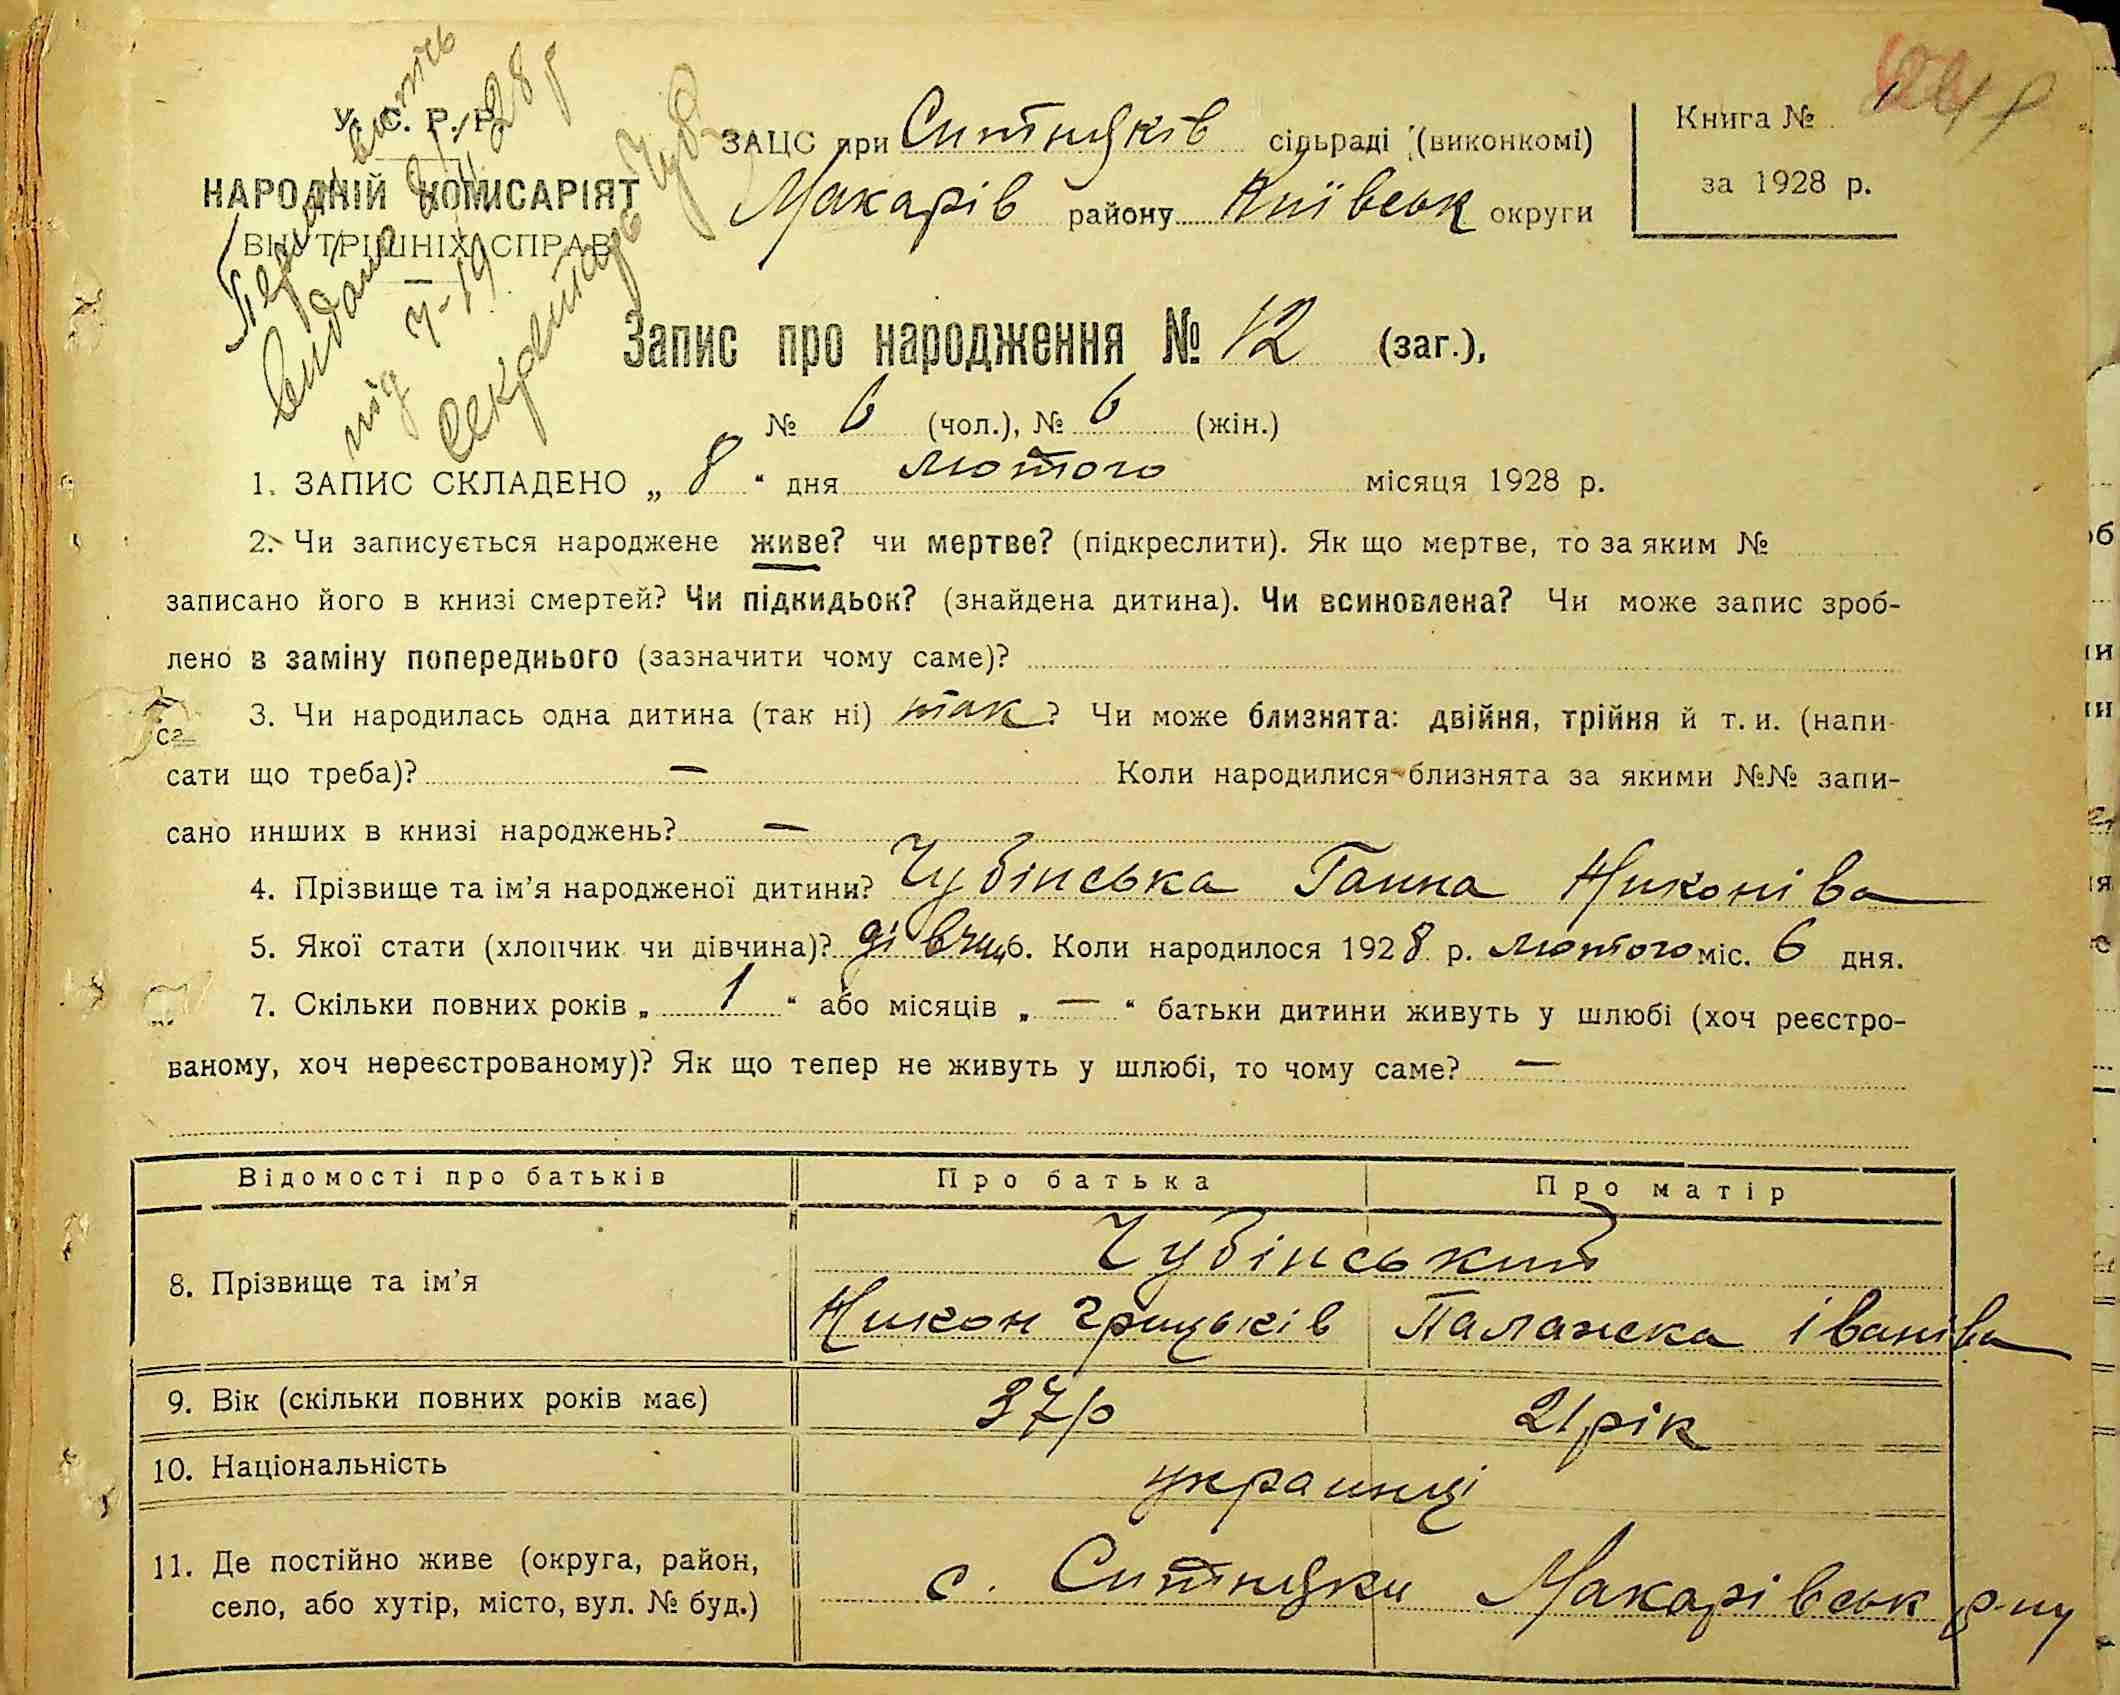 У. С. Р. Р.
НАРОДНІЙ КОМИСАРІЯТ
ВНУТРІШНІХ СПРАВ
видана
під ч-19
Секретарь Чуб
28 р
ЗАЦС при Ситняків сільраді (виконкомі)
Макарів району Київськ округи
Книга №
за 1928 р.
Запис про народження № 12 (заг.),
№ 6 (чол.), № 6 (жін.)
1. ЗАПИС СКЛАДЕНО „ 8 “ дня лютого місяця 1928 р.
2. Чи записується народжене живе? чи мертве? (підкреслити). Як що мертве, то за яким №
записано його в книзі смертей? Чи підкидьок? (знайдена дитина). Чи всиновлена? Чи може запис зроб-
лено в заміну попереднього (зазначити чому саме)?
3. Чи народилась одна дитина (так ні) так? Чи може близнята: двійня, трійня й т. и. (напи-
сати що треба)? — Коли народилися близнята за якими №№ запи-
сано инших в книзі народжень? —
4. Прізвище та ім’я народженої дитини? Чубінська Ганна Никонівa
5. Якої стати (хлопчик чи дівчина)? дівчин 6. Коли народилося 1928 р. лютого міс. 6 дня.
7. Скільки повних років „ 1 “ або місяців „ — “ батьки дитини живуть у шлюбі (хоч реєстро-
ваному, хоч нереєстрованому)? Як що тепер не живуть у шлюбі, то чому саме? —
Відомості про батьків Про батька Про матір
8. Прізвище та ім’я Чубінський
Никон Грицьків Палажка Іваніва
9. Вік (скільки повних років має) 37 р 21 рік
10. Національність украинці
11. Де постійно живе (округа, район,
село, або хутір, місто, вул. № буд.) с. Ситняки Макарівськ р-ну